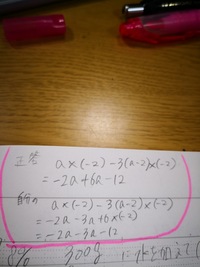 正答 a×(-2)-3(a-2)×(-2)
=-2a+6a-12
自分の a×(-2)-3(a-2)×(-2)
=-2a-3a+6×(-2)
=-2a-3a-12
300g